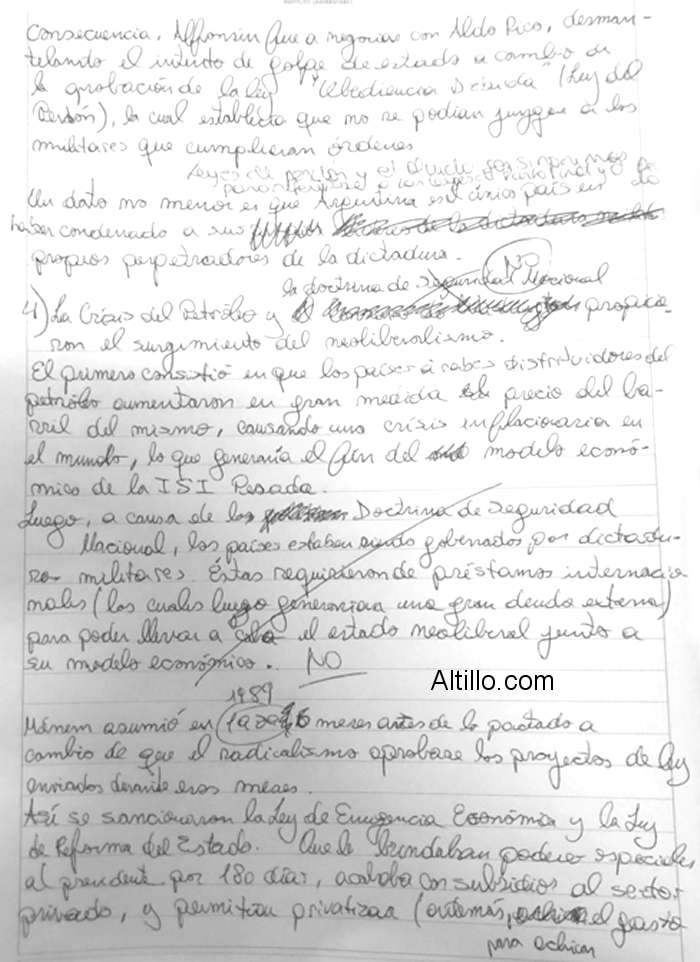 consecuencia, Alfonsín fue a negociar con Aldo Rico, desman-
telando el intento de golpe de estado a cambio de
la aprobación de la ley "Obediencia Debida" (Ley del
Perdón), la cual establecía que no se podían juzgar a los
militares que cumplieran órdenes
Leyes de perdón y el
Un dato no menor es que Argentina es el único país en
haber condenado a sus
propios perpetradores de la dictadura. NO
la doctrina de Seguridad Nacional
4) La Crisis del Petróleo y propicia-
ron el surgimiento del neoliberalismo.
El primero consistió en que los países árabes distribuidores del
petróleo aumentaron en gran medida el precio del ba-
rril del mismo, causando una crisis inflacionaria en
el mundo, lo que generaría el fin del modelo econó-
mico de la ISI Pesada.
Luego, a causa de la Doctrina de Seguridad
Nacional, los países estaban siendo gobernados por dictadu-
ras militares. Éstas requirieron de préstamos internacio
nales (los cuales luego generarían una gran deuda externa)
para poder llevar a cabo el estado neoliberal junto a
su modelo económico. NO
Altillo.com
1989
Ménem asumió en 6 meses antes de lo pactado a
cambio de que el radicalismo aprobase los proyectos de ley
enviados durante esos meses.
Así se sancionaron la Ley de Emergencia Económica y la Ley
de Reforma del Estado. Que le brindaban poderes especiales
al presidente por 180 días, acababa con subsidios al sector
privado, y permitían privatizar (además, el gasto
para achicar